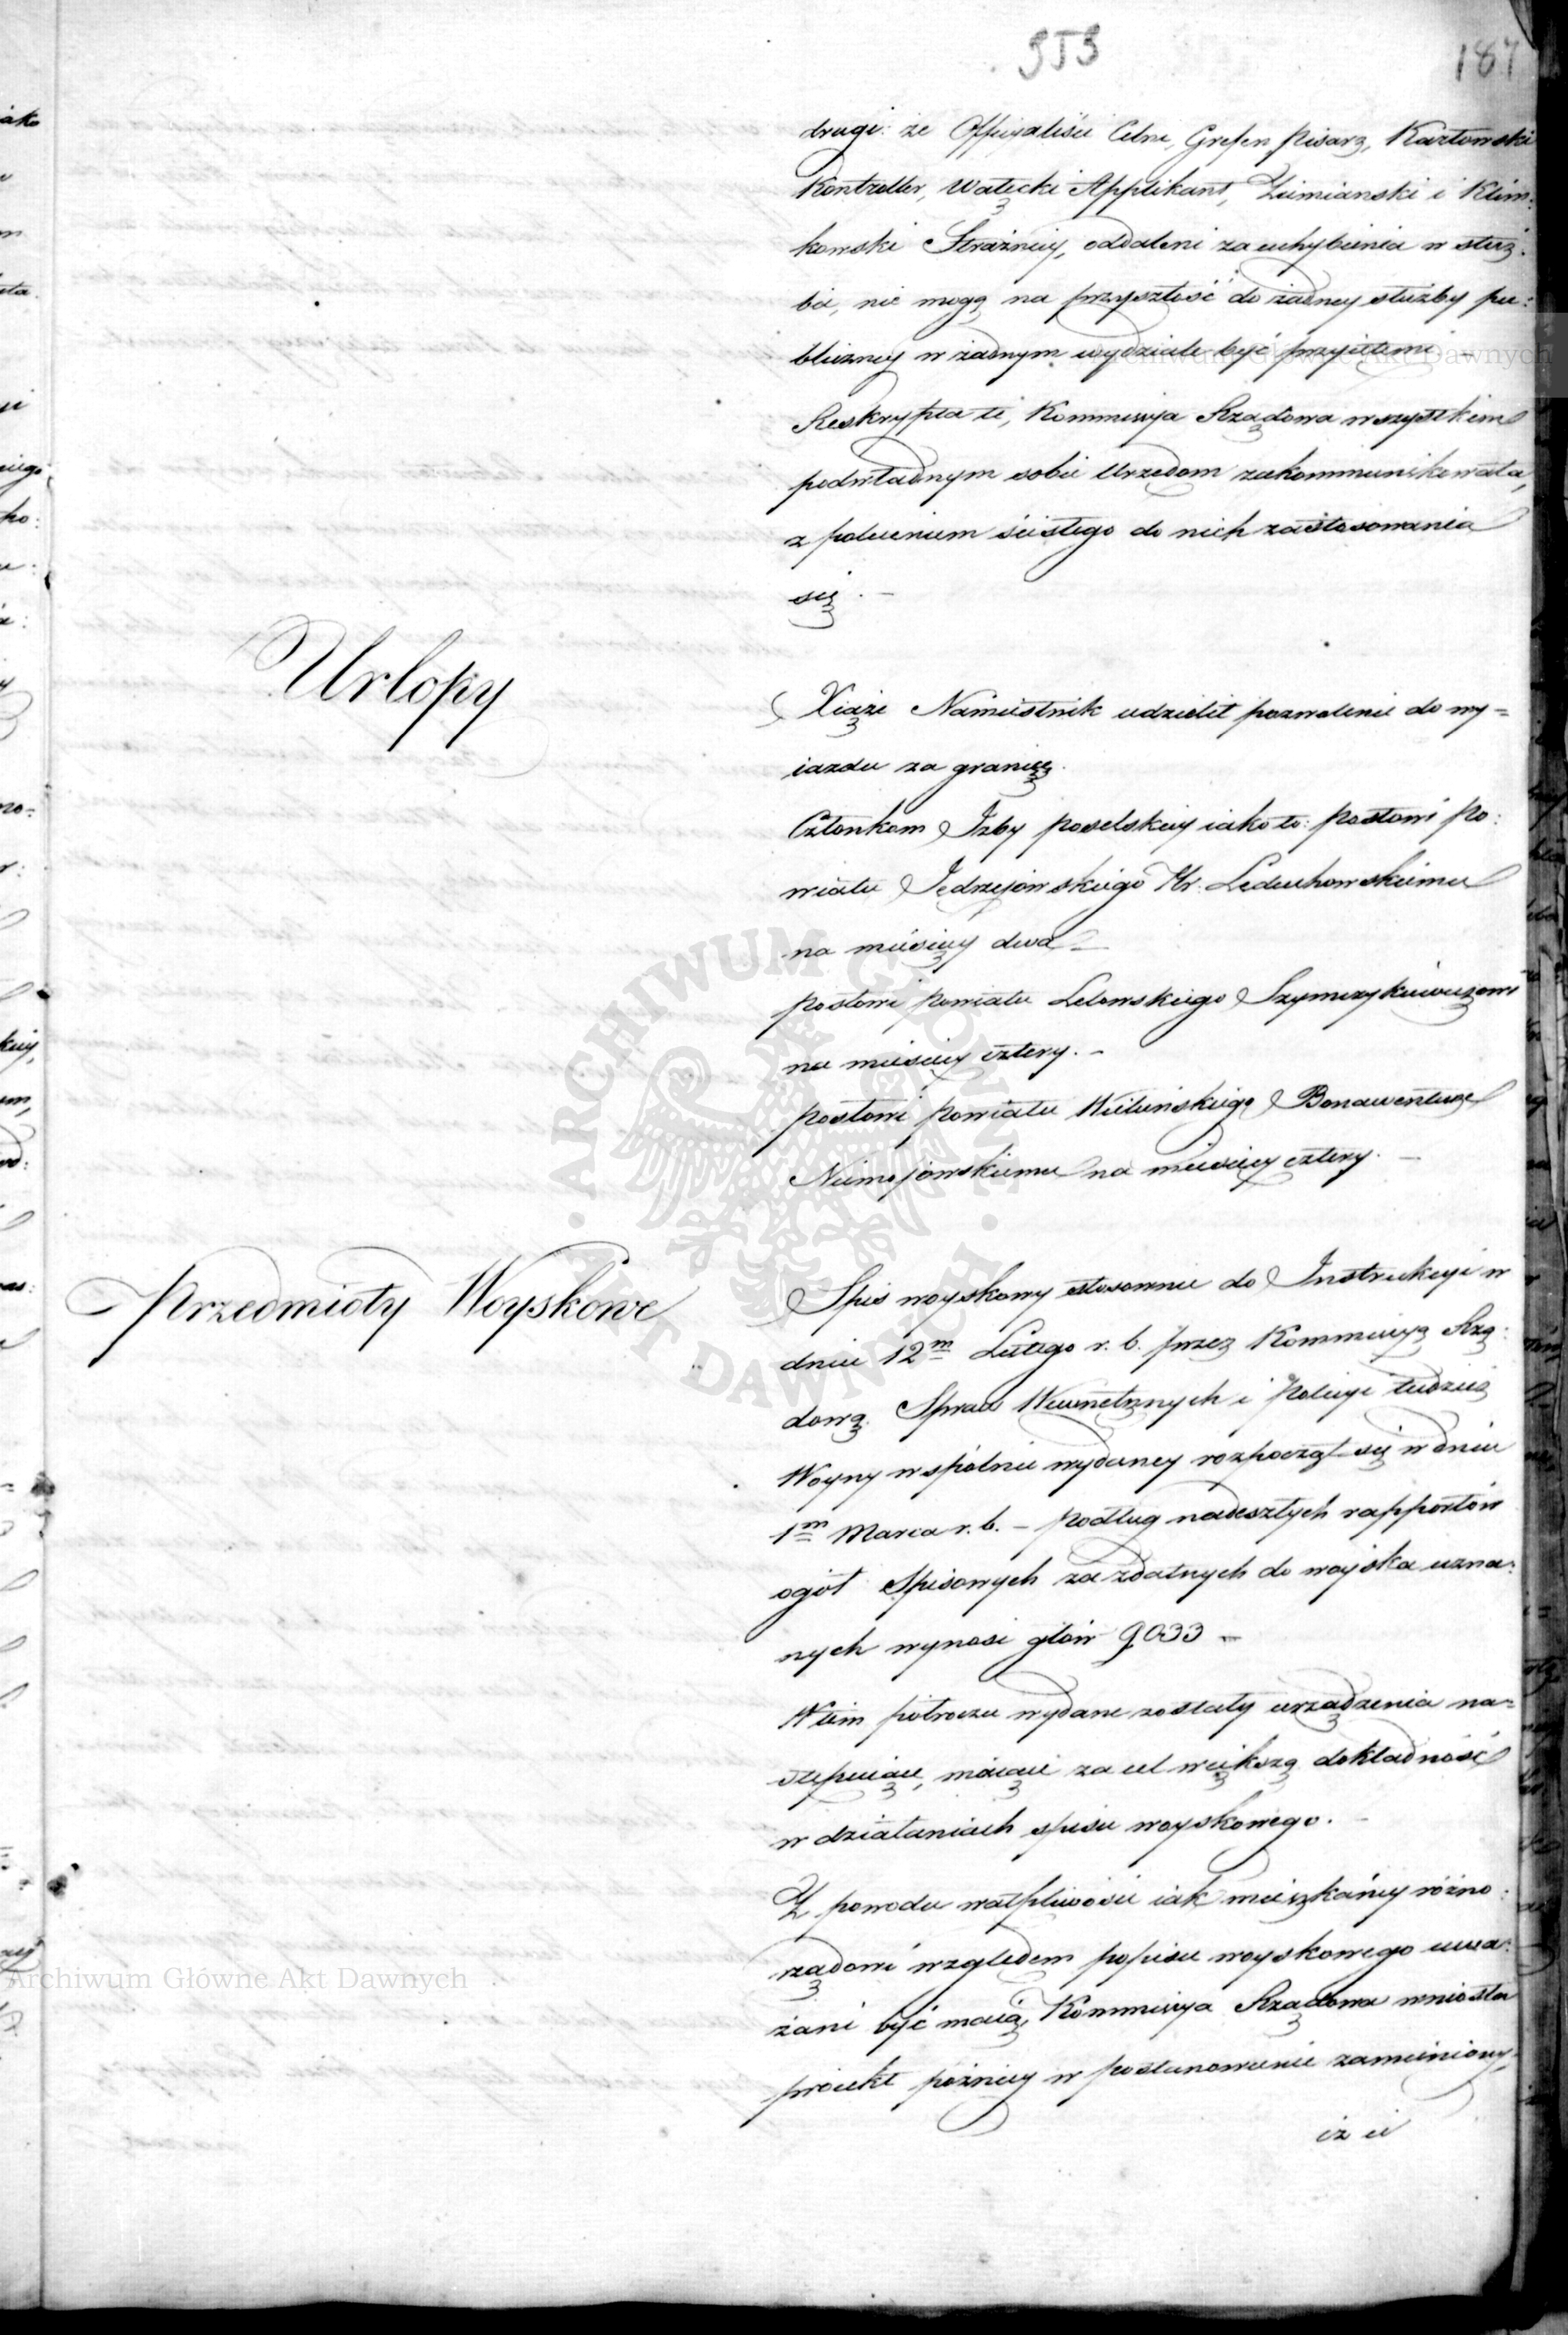 353
187
drugi: że Officyaliści Celni, Grefen Pisarz, Kozłowski
Kontroller, Wałęcki Applikant, Zumianski i Klim:
kowski Strażnicy, oddaleni za uchybienia w służ:
bie, nie mogą na przyszłość do żadney służby pu:
bliczney w żadnym wydziale być przyiętemi
Reskrypta te, Kommissya Rządowa wszystkiem
podwładnym sobie Urzędom zakommunikowała,
z poleceniem ścisłego do nich zastosowania
się. –
Urlopy
Xiąże Namiestnik udzielił pozwolenie do wy=
iazdu za granicę.
Członkom Izby poselskiey iako to: posłowi po:
wiatu Jędrzejowskiego Hr. Leduchowskiemu
na miesięcy dwa –
posłowi powiatu Lelowskiego Szymczykiewiczowi
na miesięcy cztery. –
posłowi powiatu Wieluńskiego Bonawenturze
Niemojowskiemu na miesięcy cztery. –
Przedmioty Woyskowe
Spis woyskowy stosownie do Instrukcyi w
dniu 12m Lutego r. b. przez Kommissyą Rzą:
dową Spraw Wewnętrznych i Policyi tudzież
Woyny wspólnie wydaney rozpoczął się w dniu
1m Marca r. b. – podług nadeszłych rapportów
ogół Spisowych za zdatnych do wojska uzna:
nych wynosi głów 9033 –
W tém półroczu wydane zostały urządzenia na=
stępuiące, maiące za cel większą dokładność
w działaniach spisu woyskowego. –
Z powodu wątpliwości iak mieszkańcy różno:
rządowi względem popisu woyskowego uwa:
żani być maią, Kommissya Rządowa wniosła
proiekt pózniey w postanowienie zamieniony,
iż ci
Archiwum Główne Akt Dawnych
ARCHIWUM GŁÓWNE AKT DAWNYCH
Archiwum Główne Akt Dawnych